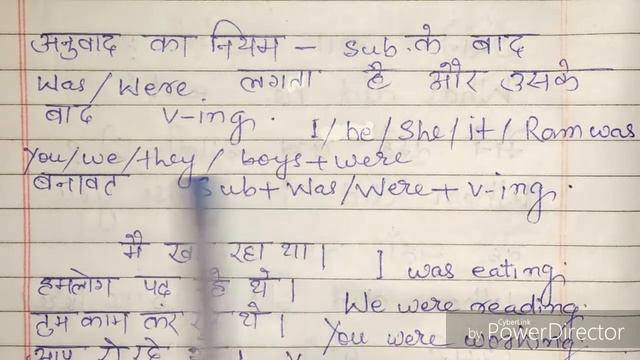 अनुवाद का नियम – Sub. के बाद
Was/Were लगता है और उसके
बाद V-ing. I/he/She/it/Ram was
You/we/they/boys + were
बनावट Sub + Was/Were + V-ing.
मै रहा था। I was eating.
हमलोग पढ़ थे। We were reading.
तुम काम कर थे। You were working.
आप रो रहे
CyberLink
by PowerDirector